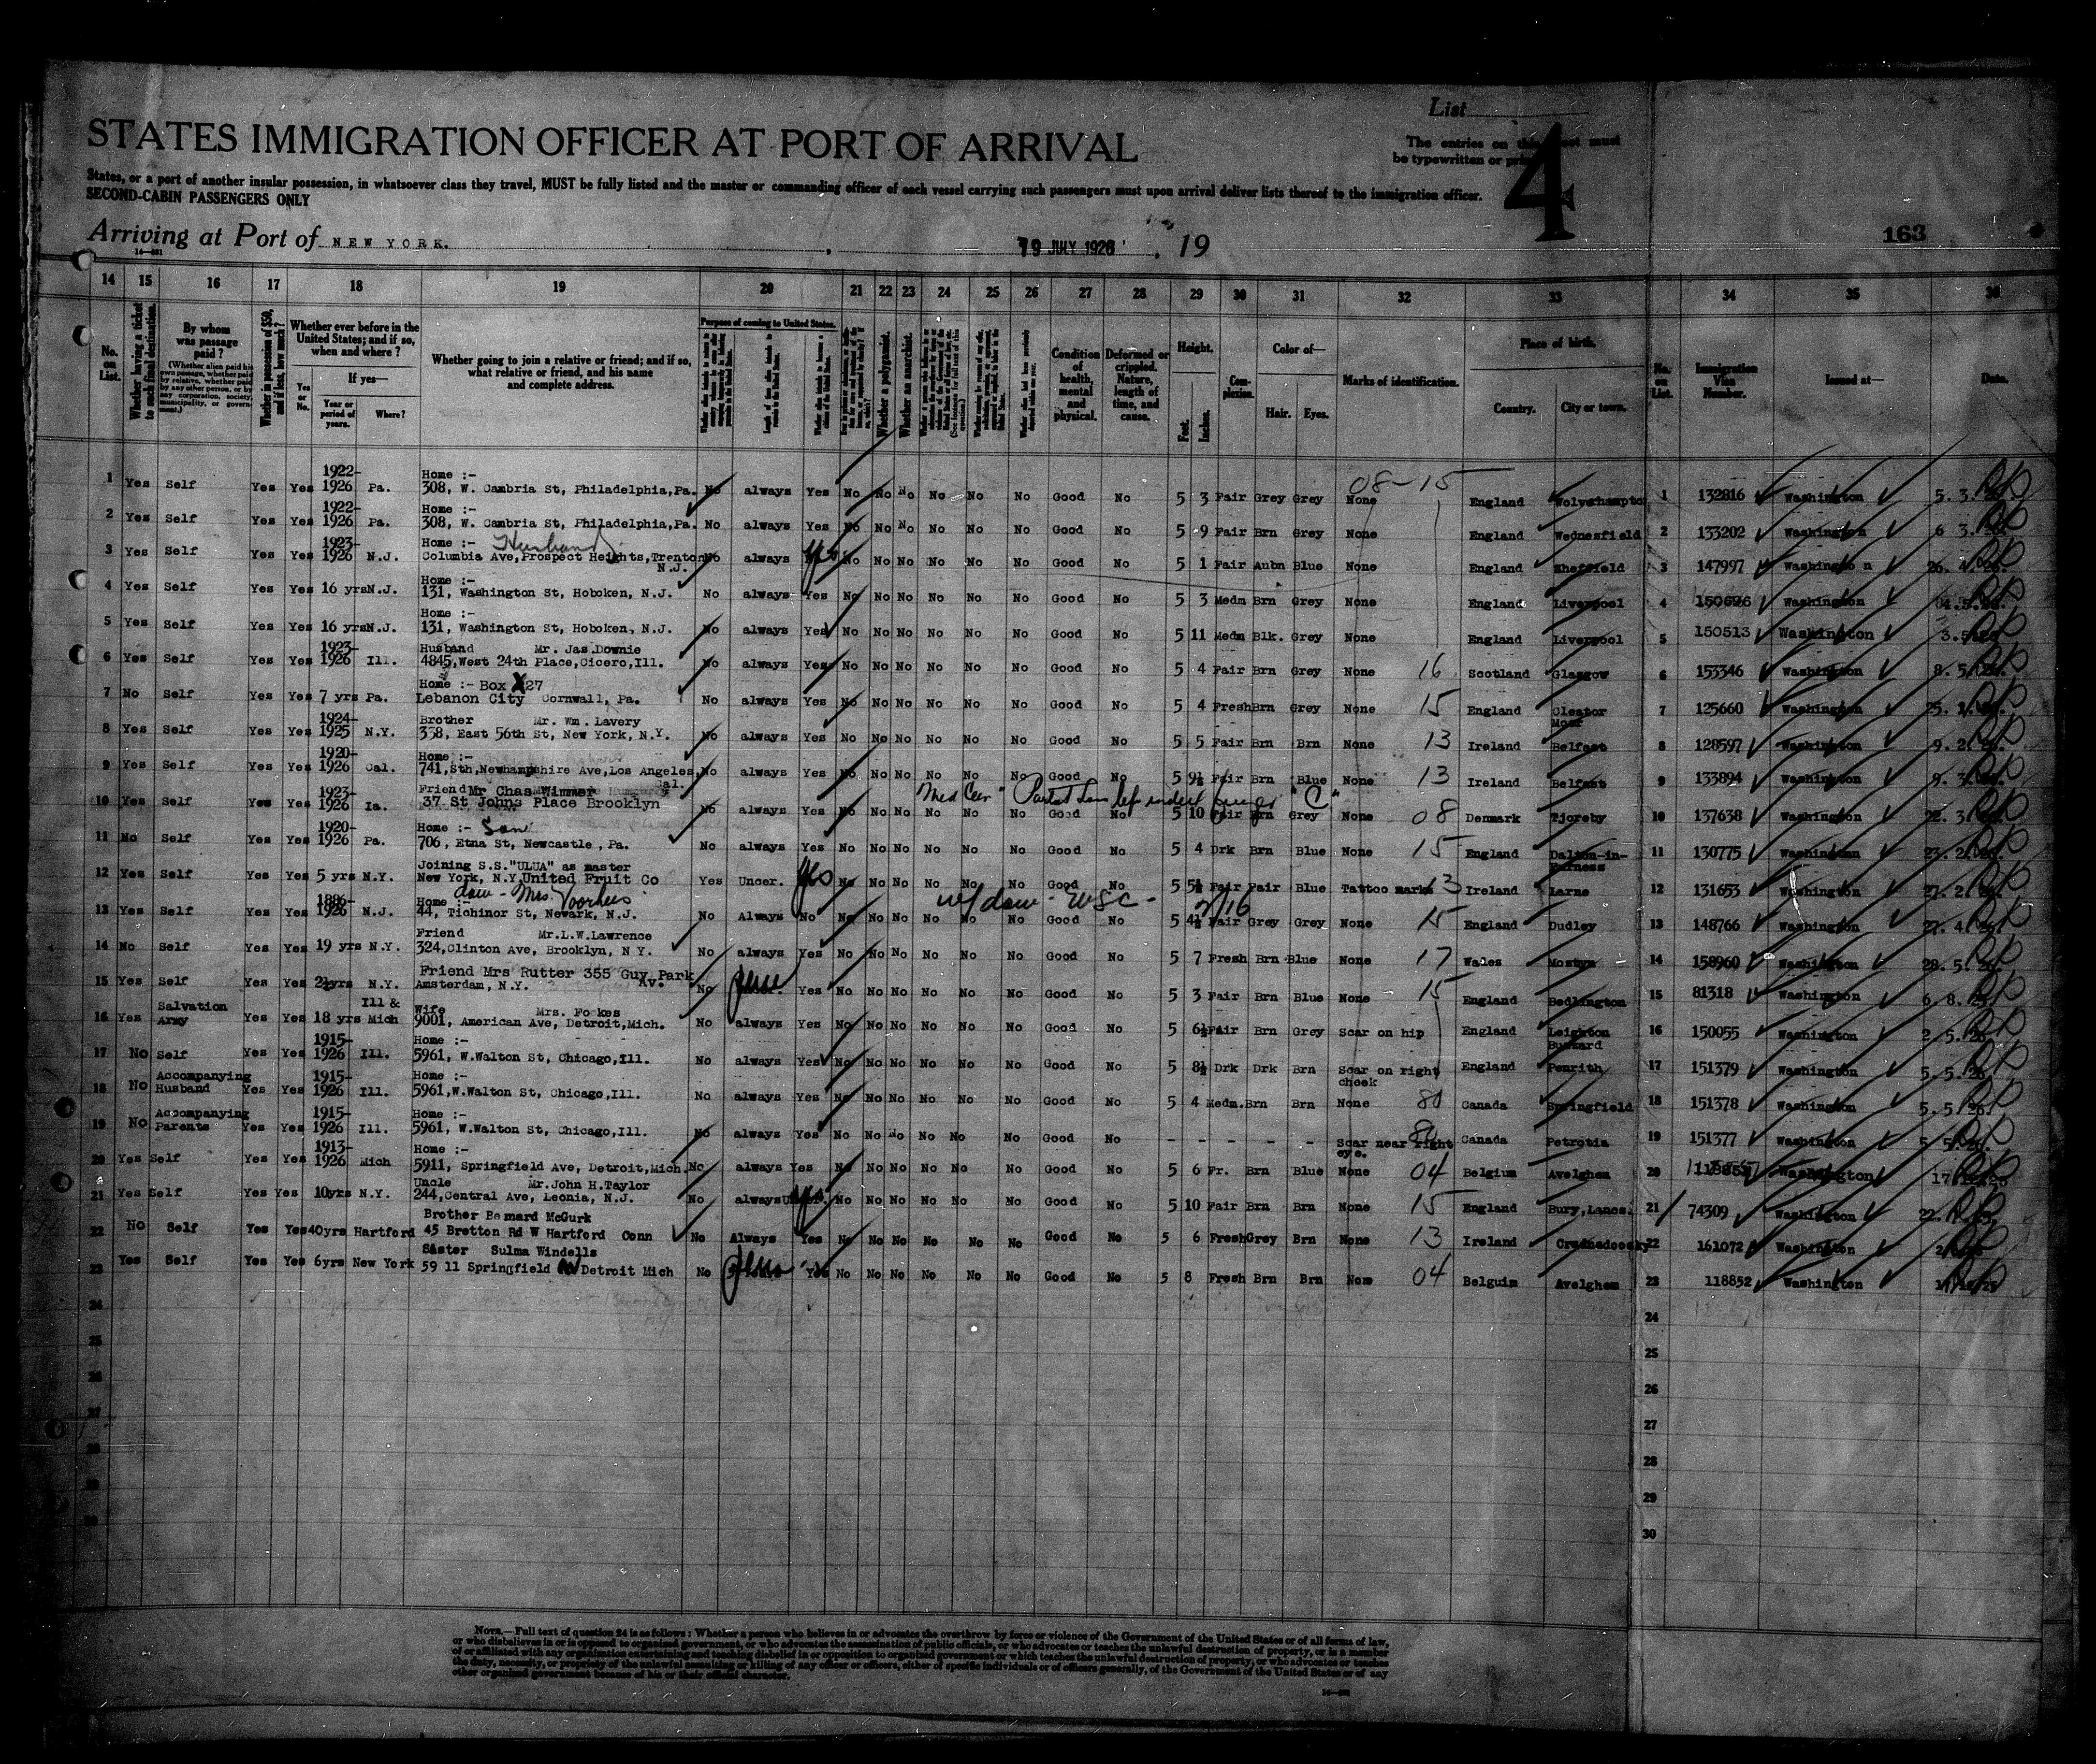 List
STATES IMMIGRATION OFFICER AT PORT OF ARRIVAL
The entries on this sheet must
be typewritten or
4
States, or a port of another insular possession, in whatsoever class they travel, MUST be fully listed and the master or commanding officer of each vessel carrying such passengers must upon arrival deliver lists thereof to the immigration officer.
SECOND-CABIN PASSENGERS ONLY
Arriving at Port of NEW YORK. , 19 JULY 1926 , 19
163
14 15 16 17 18 19 20 21 22 23 24 25 26 27 28 29 30 31 32 33 34 35 36
No. on List.
Whether having a ticket to such final destination.
By whom was passage paid?
(Whether alien paid his own passage, whether paid by relative, whether paid by any other person, or by any corporation, society, municipality, or government.)
Whether in possession of $50, and if less, how much?
Whether ever before in the United States; and if so, when and where?
Yes or No.
If yes—
Year or period of years.
Where?
Whether going to join a relative or friend; and if so, what relative or friend, and his name and complete address.
Purpose of coming to United States.
Whether a polygamist.
Whether an anarchist.
Condition of health, mental and physical.
Deformed or crippled. Nature, length of time, and cause.
Height.
Feet. Inches.
Complexion.
Color of—
Hair. Eyes.
Marks of identification.
Place of birth.
Country. City or town.
No. on List.
Immigration Visa Number.
Issued at—
Date.
08-15
1 Yes Self Yes Yes 1922-1926 Pa. Home :- 308, W. Cambria St, Philadelphia,Pa. No always Yes No No No No No No Good No 5 3 Fair Grey Grey None England Wolverhampton 1 132816 Washington 5. 3.
2 Yes Self Yes Yes 1922-1926 Pa. Home :- 308, W. Cambria St, Philadelphia,Pa. No always Yes No No No No No No Good No 5 9 Fair Brn Grey None England Wednesfield 2 133202 Washington 6 3.
3 Yes Self Yes Yes 1923-1926 N.J. Home :- Husband Columbia Ave,Prospect Heights,Trenton N.J. No always Yes No No No No No No Good No 5 1 Fair Aubn Blue None England Sheffield 3 147997 Washington 26. 4.
4 Yes Self Yes Yes 16 yrs N.J. Home :- 131, Washington St, Hoboken, N.J. No always Yes No No No No No No Good No 5 3 Medm Brn Grey None England Liverpool 4 150696 Washington
5 Yes Self Yes Yes 16 yrs N.J. Home :- 131, Washington St, Hoboken, N.J. No always Yes No No No No No No Good No 5 11 Medm Blk. Grey None England Liverpool 5 150513 Washington 3.5
6 Yes Self Yes Yes 1923-1926 Ill. Husband Mr. Jas.Downie 4845,West 24th Place,Cicero,Ill. No always Yes No No No No No No Good No 5 4 Fair Brn Grey None 16 Scotland Glasgow 6 153346 Washington 8. 5.
7 No Self Yes Yes 7 yrs Pa. Home :- Box 27 Lebanon City Cornwall, Pa. No always Yes No No No No No No Good No 5 4 Fresh Brn Grey None 15 England Cleator Moor 7 125660 Washington 25. 1.
8 Yes Self Yes Yes 1924-1925 N.Y. Brother Mr. Wm. Lavery 338, East 56th St, New York, N.Y. No always Yes No No No No No No Good No 5 5 Fair Brn Brn None 13 Ireland Belfast 8 128597 Washington 9. 2.
9 Yes Self Yes Yes 1920-1926 Cal. Home :- 741,Sth,Newhampshire Ave,Los Angeles, Cal. No always Yes No No No No No No Good No 5 9½ Fair Brn Blue None 13 Ireland Belfast 9 133894 Washington 9. 3.
10 Yes Self Yes Yes 1923-1926 Ia. Friend Mr Chas Wimmer 37 St Johns Place Brooklyn No always Yes No No No No No No Good No 5 10 Fair Brn Grey None 08 Denmark Tjoreby 10 137638 Washington 22. 3.
11 No Self Yes Yes 1920-1926 Pa. Home :- Son 706, Etna St, Newcastle, Pa. No always Yes No No No No No No Good No 5 4 Drk Brn Blue None 15 England Dalton-in-Furness 11 130775 Washington 23. 2.
12 Yes Self Yes Yes 5 yrs N.Y. Joining S.S."ULUA" as master New York, N.Y. United Fruit Co Yes Uncer. Yes No No No No No No Good No 5 5½ Fair Fair Blue Tattoo marks 13 Ireland Larne 12 131653 Washington 27. 2.
13 Yes Self Yes Yes 1886-1926 N.J. Home :- dau - Mrs. Voorhees 44, Tichinor St, Newark, N.J. No Always No No No No No No No Good No 5 4½ Fair Grey Grey None 15 England Dudley 13 148766 Washington 27. 4.
14 No Self Yes Yes 19 yrs N.Y. Friend Mr.L.W.Lawrence 324,Clinton Ave, Brooklyn, N Y. No always Yes No No No No No No Good No 5 7 Fresh Brn Blue None 17 Wales Mostyn 14 158960 Washington 28. 5.
15 Yes Self Yes Yes 2½yrs N.Y. Friend Mrs Rutter 355 Guy Park Av. Amsterdam, N.Y. No Yes No No No No No No Good No 5 3 Fair Brn Blue None 15 England Bedlington 15 81318 Washington 6 8.
16 Yes Salvation Army Yes Yes 18 yrs Ill & Mich Wife Mrs. Fookes 9001, American Ave, Detroit,Mich. No always Yes No No No No No No Good No 5 6½ Fair Brn Grey Scar on hip England Leighton Buzzard 16 150055 Washington 2 5.
17 No Self Yes Yes 1915-1926 Ill. Home :- 5961, W.Walton St, Chicago,Ill. No always Yes No No No No No No Good No 5 8½ Drk Drk Brn Scar on right cheek England Penrith 17 151379 Washington 5. 5.
18 No Accompanying Husband Yes Yes 1915-1926 Ill. Home :- 5961,W.Walton St, Chicago,Ill. No always Yes No No No No No No Good No 5 4 Medm. Brn Brn None 80 Canada Springfield 18 151378 Washington 5. 5
19 No Accompanying Parents Yes Yes 1915-1926 Ill. Home :- 5961, W.Walton St, Chicago,Ill. No always Yes No No No No No No Good No - - - - - Scar near right eye. Canada Petrolia 19 151377 Washington 5
20 Yes Self Yes Yes 1913-1926 Mich Home :- 5911, Springfield Ave, Detroit,Mich. No always Yes No No No No No No Good No 5 6 Fr. Brn Blue None 04 Belgium Avelghem 20 Washington 17
21 Yes Self Yes Yes 10yrs N.Y. Uncle Mr.John H.Taylor 244,Central Ave, Leonia, N.J. No always Yes No No No No No No Good No 5 10 Fair Brn Brn None 15 England Bury,Lancs. 21 74309 Washington 22.
22 No Self Yes Yes 40yrs Hartford Brother Bernard McGurk 45 Bretton Rd W Hartford Conn No Always Yes No No No No No No Good No 5 6 Fresh Grey Brn None 13 Ireland 22 161072 Washington
23 Yes Self Yes Yes 6yrs New York Sister Sulma Windells 59 11 Springfield Detroit Mich No Yes No No No No No No Good No 5 8 Fresh Brn Brn None 04 Belguim Avelghem 23 118852 Washington
24 24
25 25
26 26
27 27
28 28
29 29
30 30
NOTE.—Full text of question 24 is as follows: Whether a person who believes in or advocates the overthrow by force or violence of the Government of the United States or of all forms of law,
or who disbelieves in or is opposed to organized government, or who advocates the assassination of public officials, or who advocates or teaches the unlawful destruction of property, or is a member
of or affiliated with any organization entertaining and teaching disbelief in or opposition to organized government or which teaches the unlawful destruction of property, or who advocates or teaches
the duty, necessity, or propriety of the unlawful assaulting or killing of any officer or officers, either of specific individuals or of officers generally, of the Government of the United States or of any
other organized government because of his or their official character.